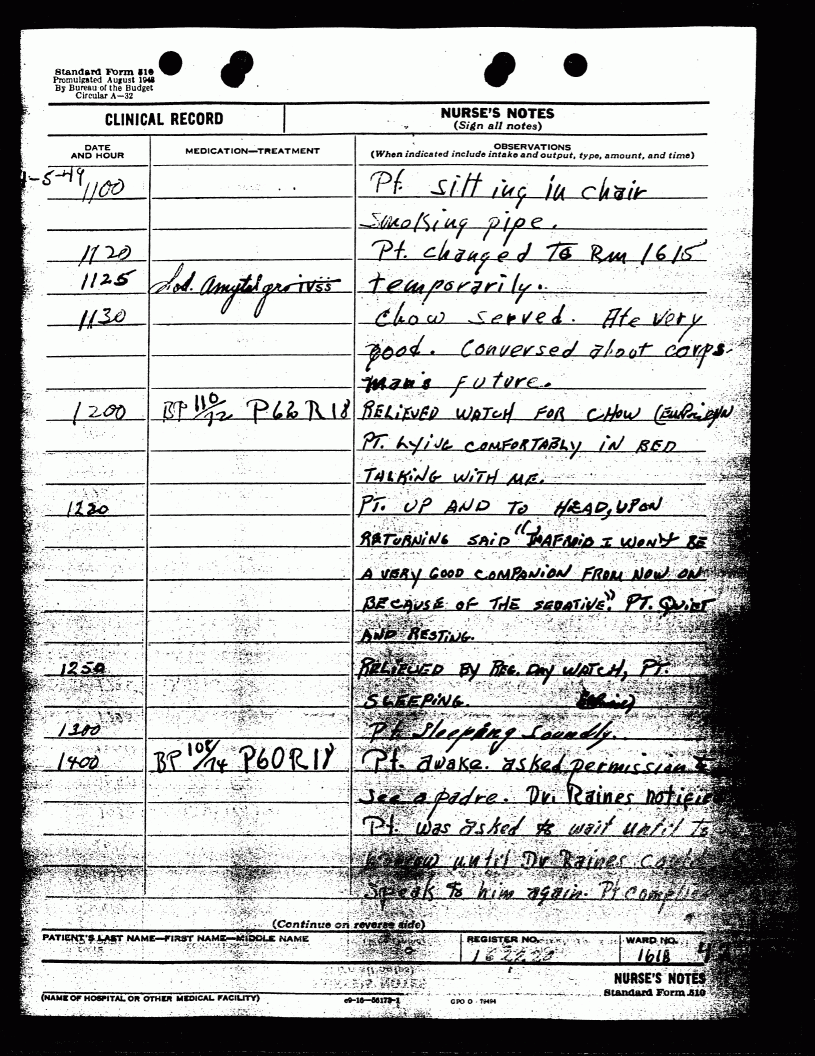 Standard Form 510
Promulgated August 1948
By Bureau of the Budget
Circular A—32
CLINICAL RECORD
NURSE'S NOTES
(Sign all notes)
DATE
AND HOUR
MEDICATION—TREATMENT
OBSERVATIONS
(When indicated include intake and output, type, amount, and time)
4-5-49
1100 Pt. sitting in chair
smoking pipe.
1120 Pt. changed To Rm 1615
1125 Sod. Amytal gr temporarily.
1130 Chow served. Ate very
good. Conversed about corps-
man's future.
1200 BP 110/72 P 68 R 18 RELIEVED WATCH FOR CHOW
PT. LYING COMFORTABLY IN BED
TALKING WITH ME.
1220 PT. UP AND TO HEAD, UPON
RETURNING SAID "I'M AFRAID I WON'T BE
A VERY GOOD COMPANION FROM NOW ON
BECAUSE OF THE SEDATIVE". PT. QUIET
AND RESTING.
1250 RELIEVED BY REG. DAY WATCH, PT.
SLEEPING.
1300 Pt. sleeping soundly.
1400 BP 108/74 P60 R18 Pt. awake. asked permission to
see a padre. Dr. Raines notified
Pt. was asked to wait until to
morrow until Dr Raines could
speak to him again. Pt complied
(Continue on reverse side)
PATIENT'S LAST NAME—FIRST NAME—MIDDLE NAME
REGISTER NO.
WARD NO.
NURSE'S NOTES
Standard Form 510
(NAME OF HOSPITAL OR OTHER MEDICAL FACILITY)
c9-16—56173-1
GPO